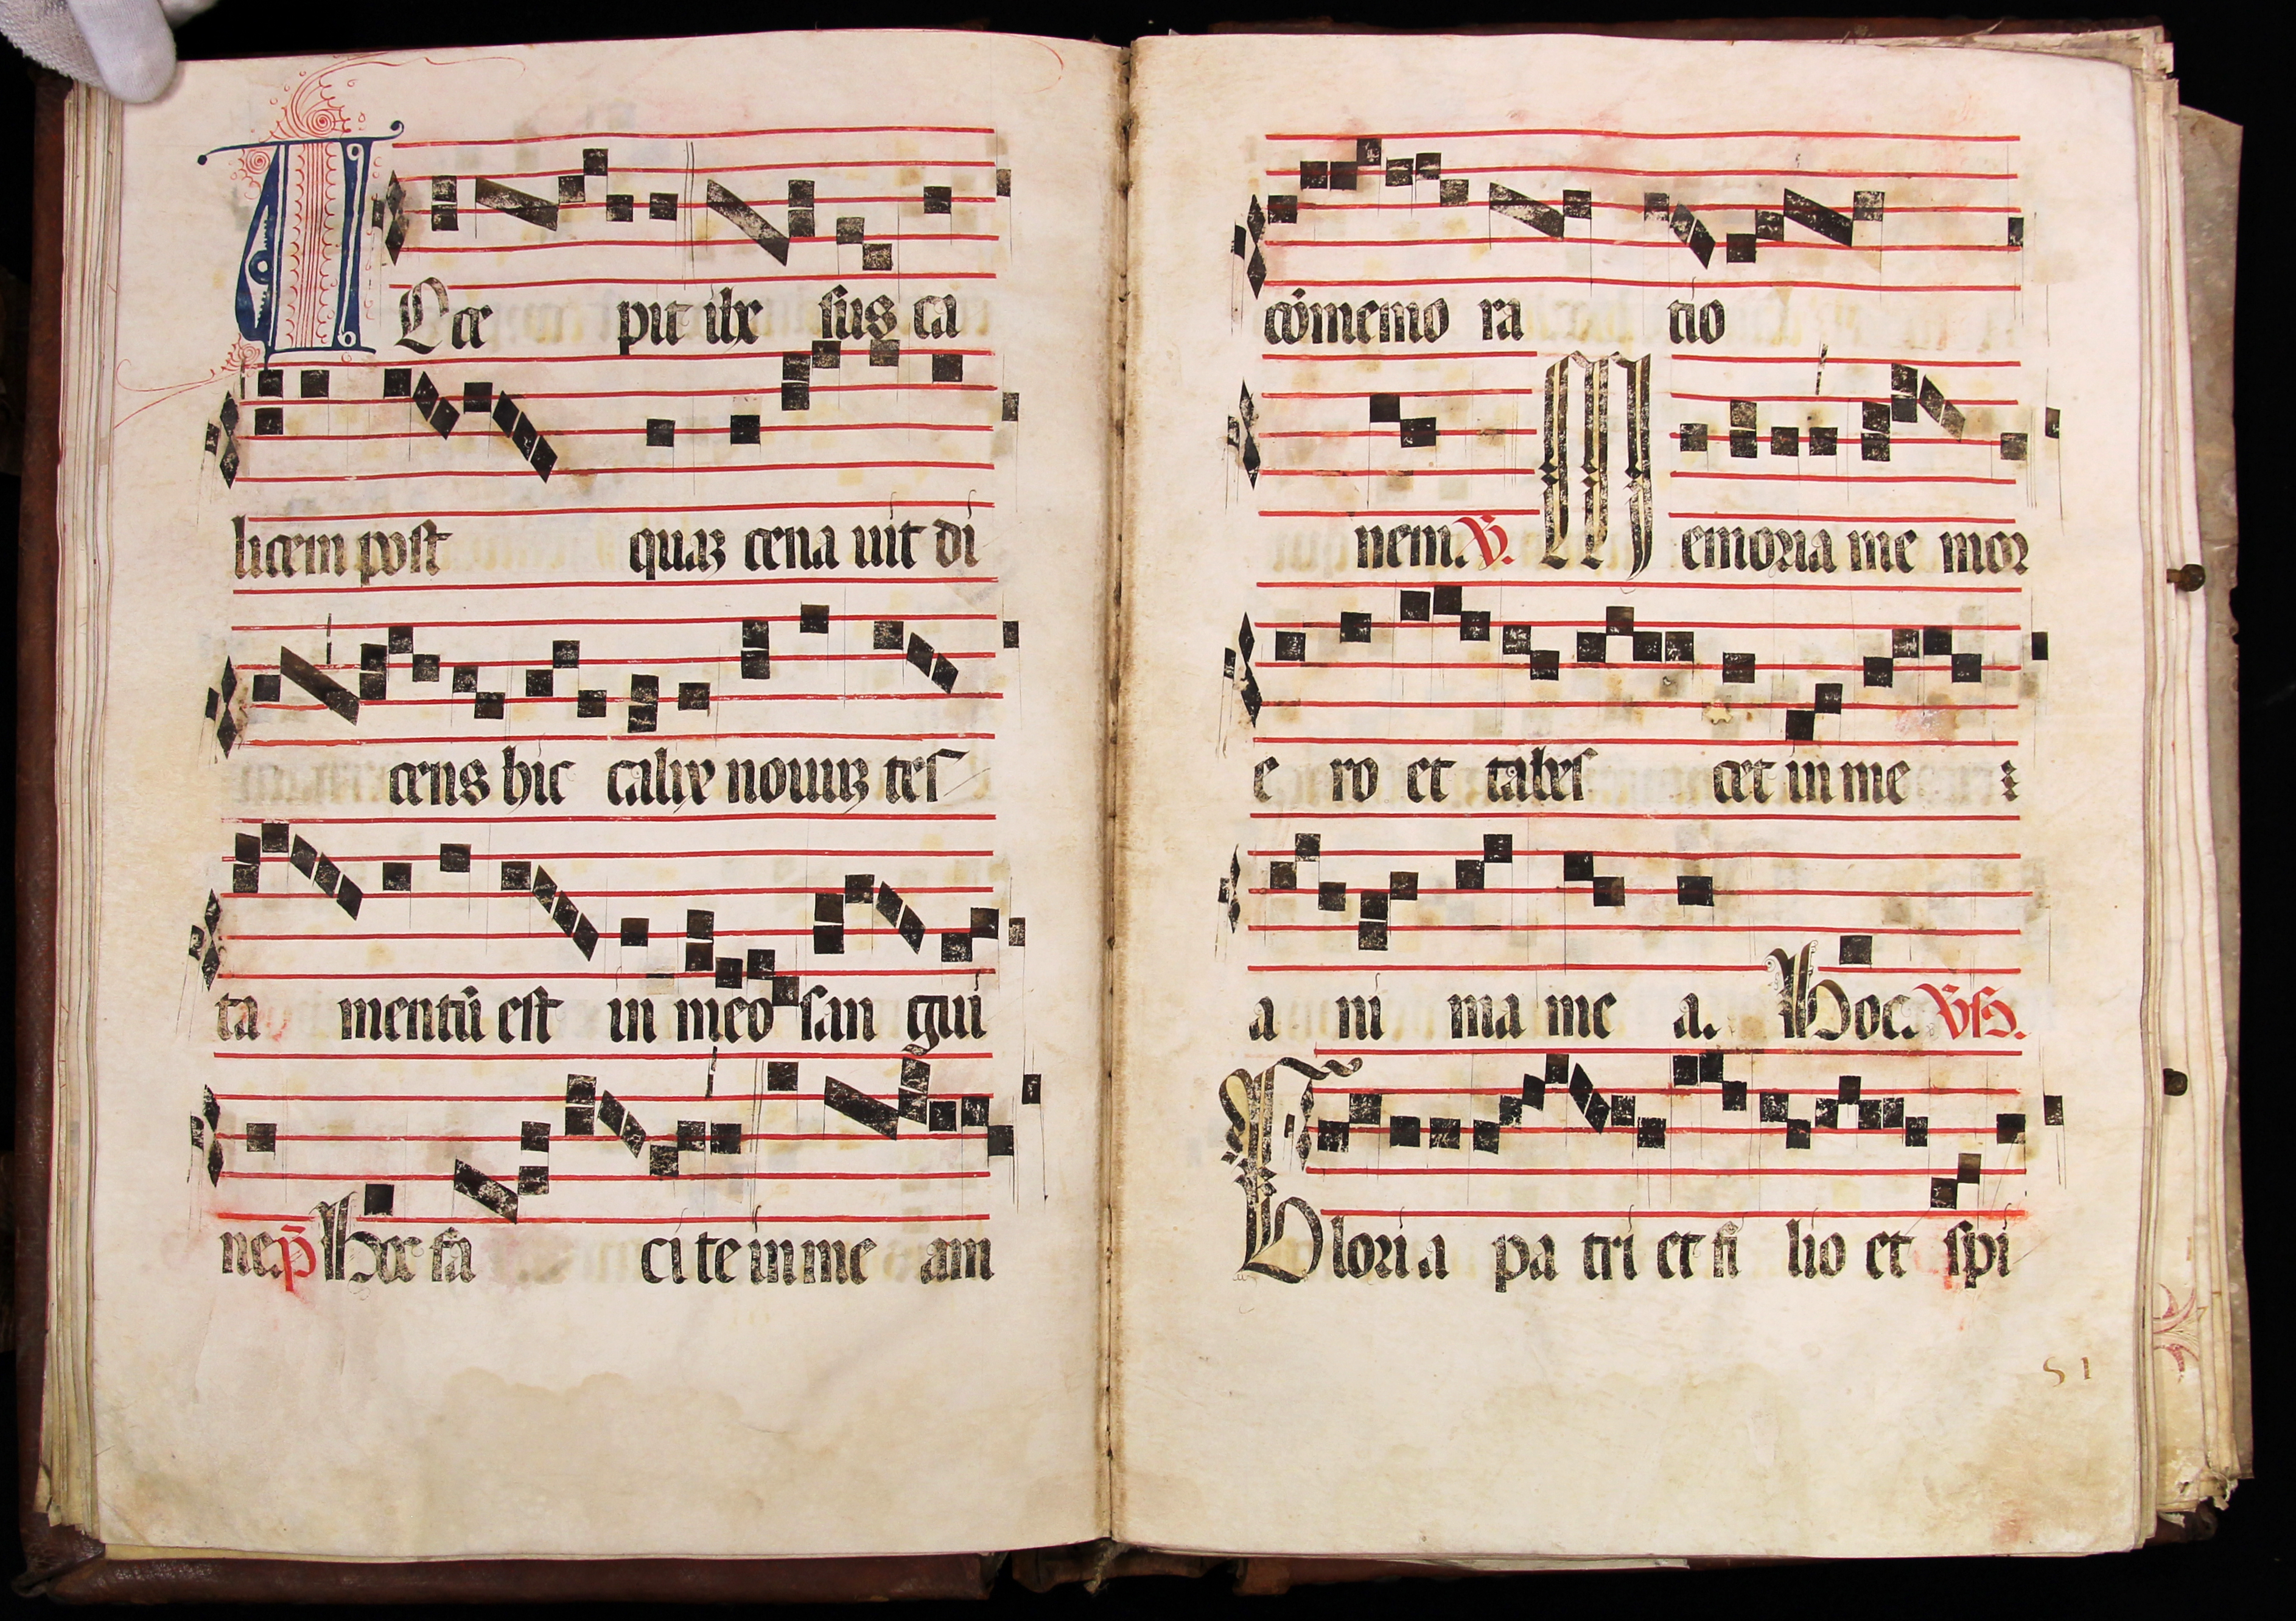 ACce pit ihe sus ca
licem post quaʒ cena uit di
cens hic calix nouuʒ tes
ta mentū est in meo san gui
ne. p̄ Hoc fa ci te in me am
cōmemo ra tio
nem. V. Memoria me mor
e ro et tabes cet in me
a ni ma me a. Hoc. Vs.
Gloria pa tri et fi lio et spi
51